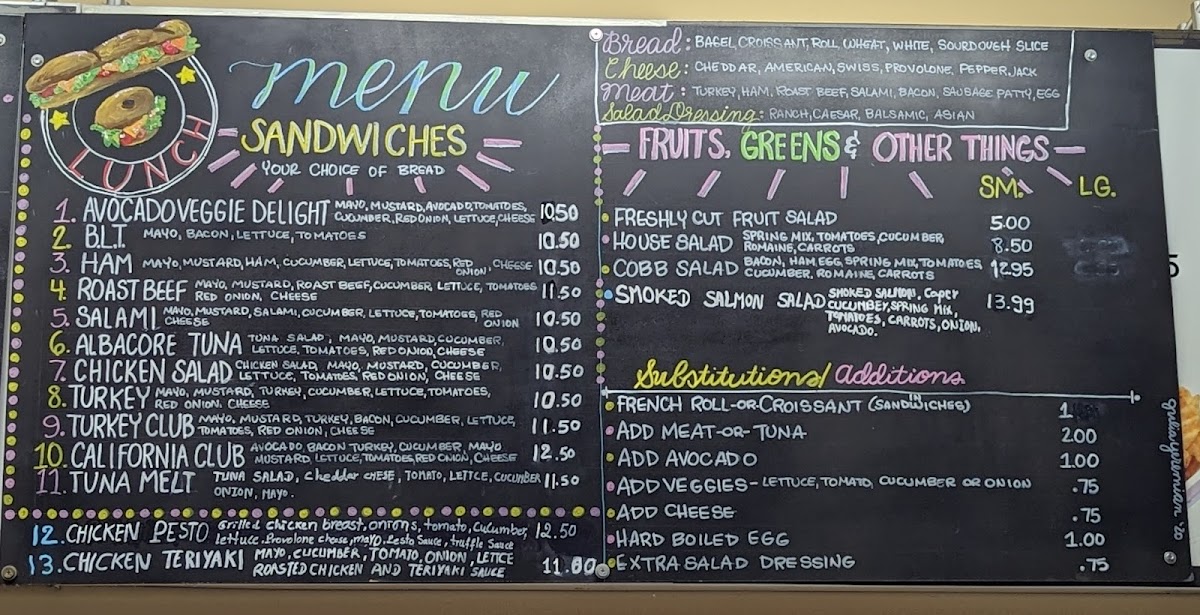 LUNCH
menu
SANDWICHES
YOUR CHOICE OF BREAD
1. AVOCADO VEGGIE DELIGHT MAYO, MUSTARD, AVOCADO, TOMATOES, 10.50
CUCUMBER, RED ONION, LETTUCE, CHEESE
2. B.L.T. MAYO, BACON, LETTUCE, TOMATOES 10.50
3. HAM MAYO, MUSTARD, HAM, CUCUMBER, LETTUCE, TOMATOES, RED ONION, CHEESE 10.50
4. ROAST BEEF MAYO, MUSTARD, ROAST BEEF, CUCUMBER, LETTUCE, TOMATOES 11.50
RED ONION, CHEESE
5. SALAMI MAYO, MUSTARD, SALAMI, CUCUMBER, LETTUCE, TOMATOES, RED ONION 10.50
CHEESE
6. ALBACORE TUNA TUNA SALAD, MAYO, MUSTARD, CUCUMBER, 10.50
LETTUCE, TOMATOES, RED ONION, CHEESE
7. CHICKEN SALAD CHICKEN SALAD, MAYO, MUSTARD, CUCUMBER, 10.50
LETTUCE, TOMATOES, RED ONION, CHEESE
8. TURKEY MAYO, MUSTARD, TURKEY, CUCUMBER, LETTUCE, TOMATOES, 10.50
RED ONION, CHEESE
9. TURKEY CLUB MAYO, MUSTARD, TURKEY, BACON, CUCUMBER, LETTUCE, 11.50
TOMATOES, RED ONION, CHEESE
10. CALIFORNIA CLUB AVOCADO, BACON TURKEY, CUCUMBER, MAYO 12.50
MUSTARD, LETTUCE, TOMATOES, RED ONION, CHEESE
11. TUNA MELT TUNA SALAD, Cheddar CHESE, TOMATO, LETTCE, CUCUMBER 11.50
ONION, MAYO.
12. CHICKEN PESTO Grilled chicken breast, onions, tomato, Cucumber, 12.50
lettuce, Provolone cheese, mayo, Pesto Sauce, truffle Sauce
13. CHICKEN TERIYAKI MAYO, CUCUMBER, TOMATO, ONION, LETTCE 11.00
ROASTED CHICKEN AND TERIYAKI SAUCE
Bread: BAGEL, CROISSANT, ROLL, WHEAT, WHITE, SOURDOUGH SLICE
Cheese: CHEDDAR, AMERICAN, SWISS, PROVOLONE, PEPPER JACK
Meat: TURKEY, HAM, ROAST BEEF, SALAMI, BACON, SAUSAGE PATTY, EGG
Salad Dressing: RANCH, CAESAR, BALSAMIC, ASIAN
FRUITS, GREENS & OTHER THINGS
SM. LG.
FRESHLY CUT FRUIT SALAD 5.00
HOUSE SALAD SPRING MIX, TOMATOES, CUCUMBER, 8.50
ROMAINE, CARROTS
COBB SALAD BACON, HAM, EGG, SPRING MIX, TOMATOES, 12.95
CUCUMBER, ROMAINE, CARROTS
SMOKED SALMON SALAD SMOKED SALMON, Caper 13.99
CUCUMBEY, SPRING MIX,
TOMATOES, CARROTS, ONION,
AVOCADO.
Substitutions/Additions
FRENCH ROLL-OR-CROISSANT (SANDWICHES) 1
ADD MEAT-OR-TUNA 2.00
ADD AVOCADO 1.00
ADD VEGGIES - LETTUCE, TOMATO, CUCUMBER OR ONION .75
ADD CHEESE .75
HARD BOILED EGG 1.00
EXTRA SALAD DRESSING .75